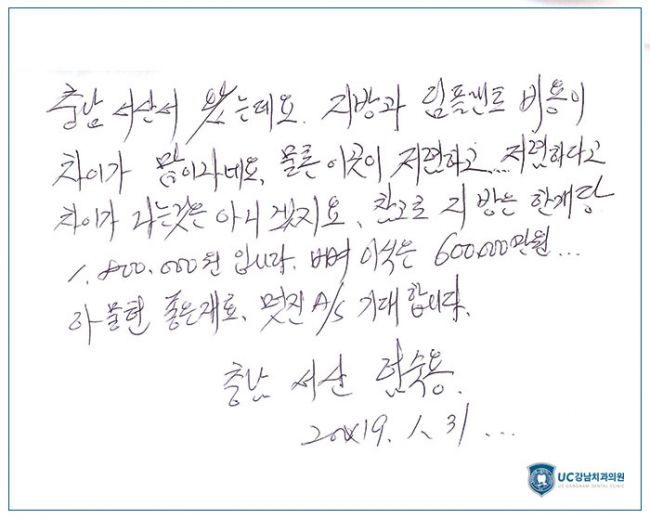 충남 서산서 왔는데요. 지방과 임플랜트 비용이
차이가 많이나네요, 물론 이곳이 저렴하고... 저렴하다고
차이가 나는것은 아니겠지요, 참고로 지방은 한개당
1,800,000원 입니다. 뼈 이식은 600,000만원...
아물현 좋은재료, 멋진 A/S 기대 합니다.
충남 서산
2019. 1. 31 ...
UC강남치과의원
UC GANGNAM DENTAL CLINIC